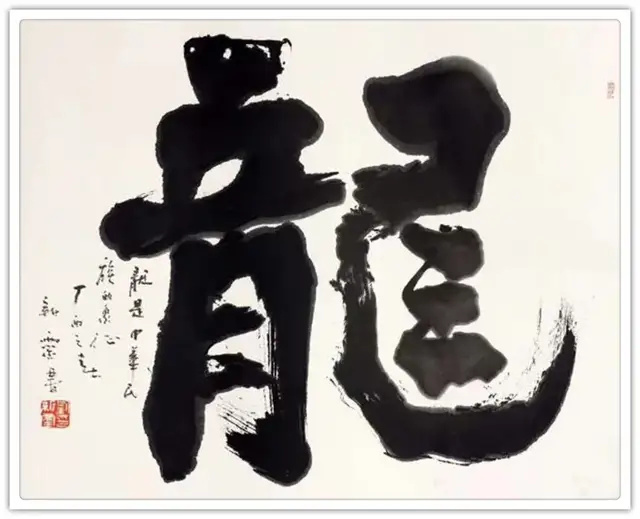 龍
龍是中華民
族的象征
丁酉之
書